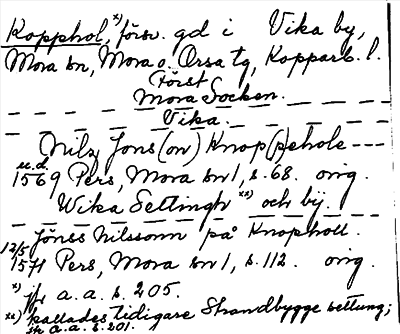 Kopphol, x) försv. gd i Vika by,
Mora sn, Mora o. Orsa tg, Kopparb. l.
Först
Mora Socken.
Vika.
Nilz Jons(on) Knop(p)ehole ---
u.d.
1569 Pers, Mora sn 1, s. 68. orig.
Wika Settingh xx) och bÿ.
Jönss Nilssonn på Knopholl.
12/5
1571 Pers, Mora sn 1, s. 112. orig.
x) jfr a.a. s. 205.
xx) kallades tidigare Strandbygge settung;
se a.a. s. 201.